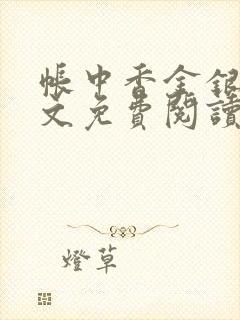 帳中香金銀
文免費閱讀
燈草